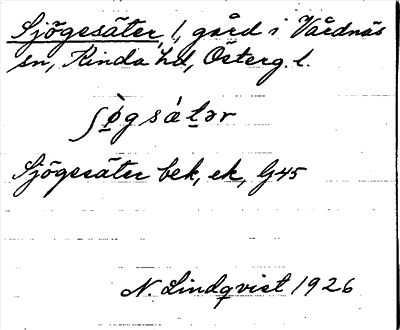 Sjögesäter, 1, gård i Vårdnäs
sn, Kinda hd, Österg. l.
ʃø̀gsátər
Sjögesäter bek, ek, G45
N. Lindqvist 1926